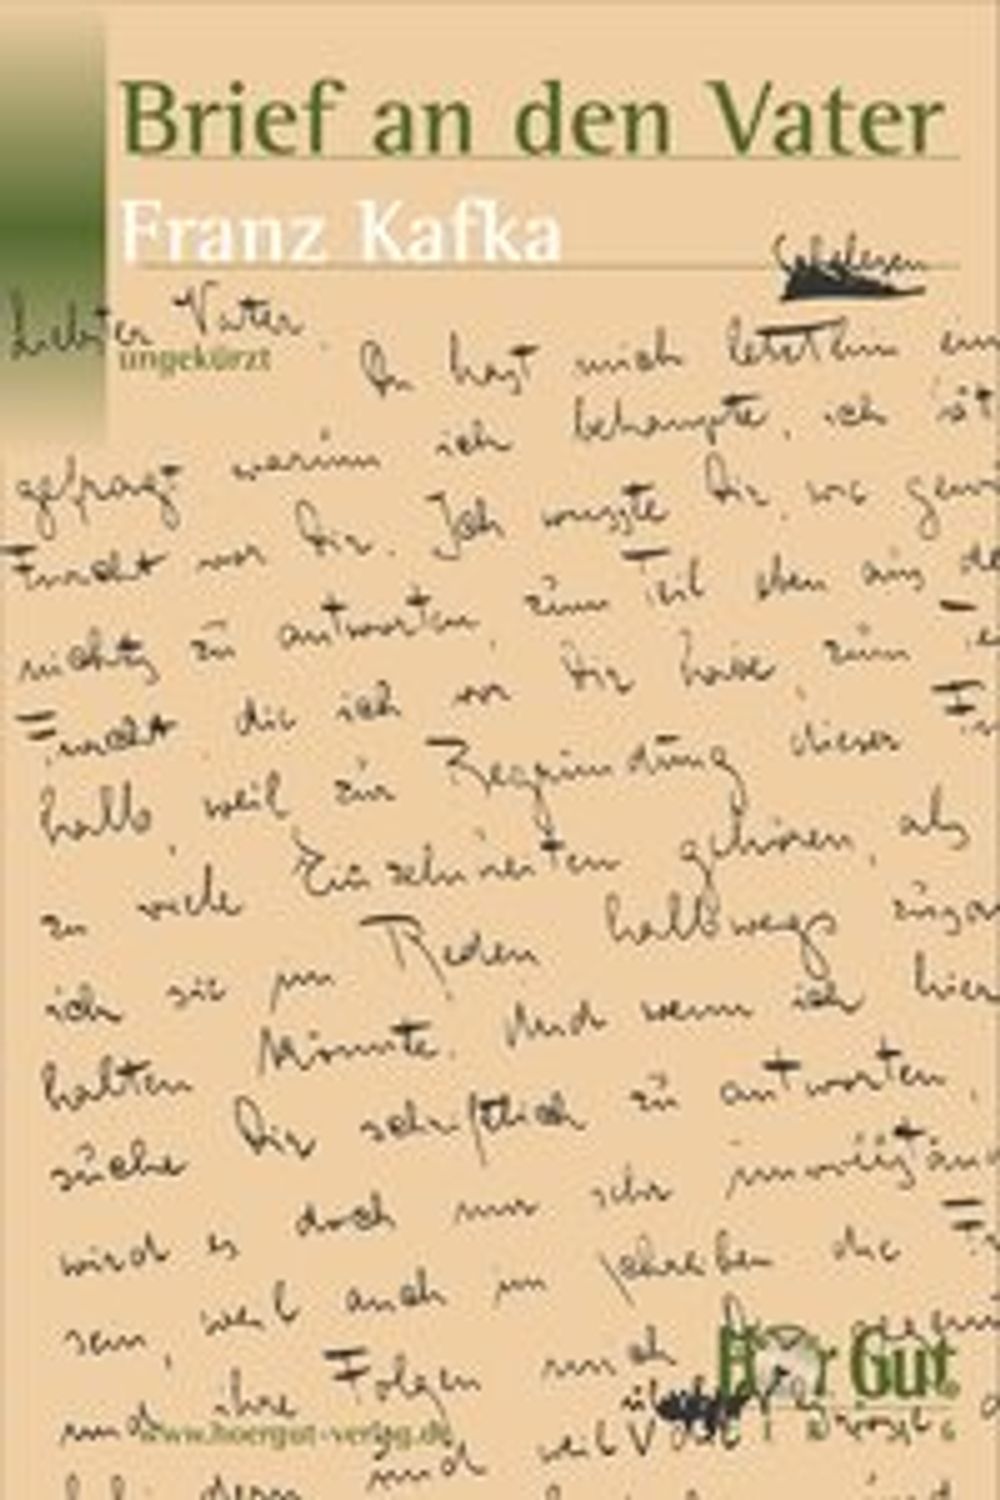 Brief an den Vater
Franz Kafka
Schelesen
Liebster Vater
ungekürzt
Du hast mich letzthin ein
gefragt warum ich behaupte, ich
Furcht vor Dir. Ich wusste Dir, wie gewö
nichts zu antworten, zum Teil eben aus de
Furcht die ich vor Dir habe, zum Te
halb, weil zur Begründung dieser Fu
zu viele Einzelnheiten gehören, als
ich sie im Reden halbwegs
halten könnte. Und wenn ich hier
suche Dir schriftlich zu antworten,
wird es doch nur sehr unvollständ
sein, weil auch im Schreiben die
und ihre Folgen mich
Hör Gut
www.hoergut-verlag.de
und weil